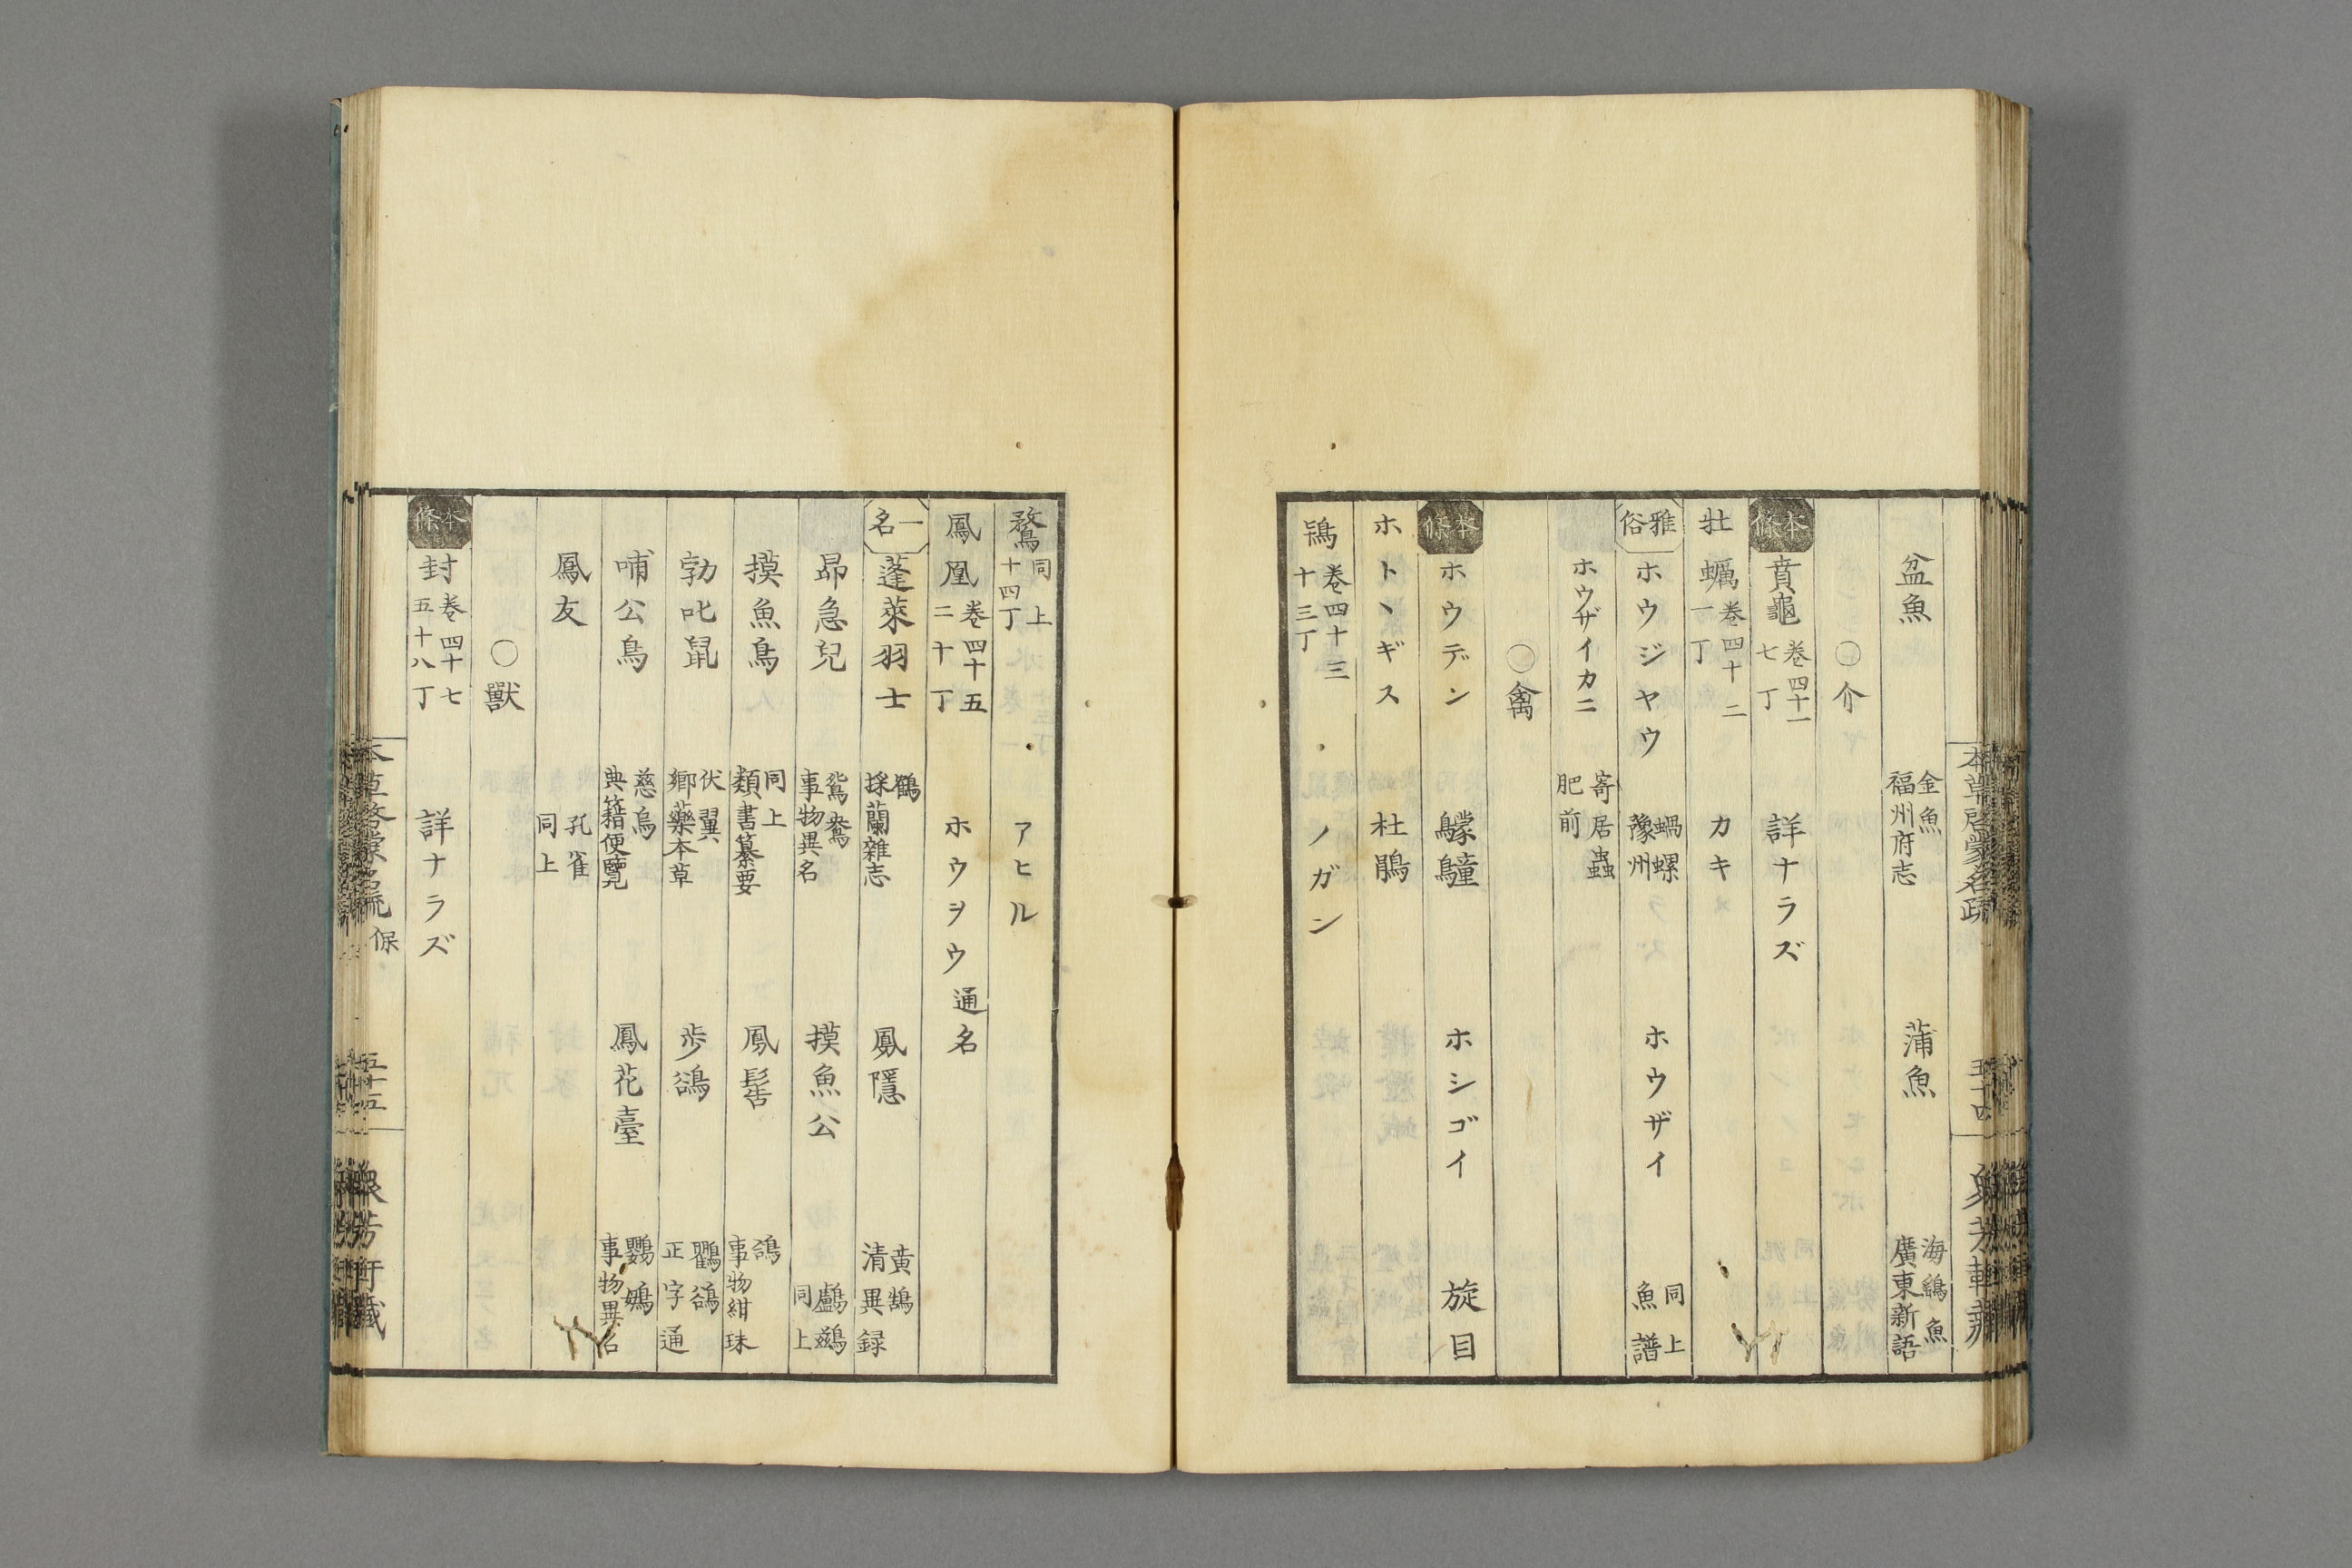 本草啓蒙名疏 五十四
盆魚 金魚 福州府志 蒲魚 海鷂魚 廣東新語
〇介
本條 賁龜 卷四十一 七丁 詳ナラズ
牡蠣 卷四十二 一丁 カキ
雅俗 ホウジヤウ 蝸螺 豫州 ホウザイ 同上 魚譜
ホウザイカニ 寄居蟲 肥前
〇禽
本條 ホウデン 鸏𪆻 ホシゴイ 旋目
ホトヽギス 杜鵑
鴇 卷四十三 十三丁 ノガン
鶩 同上 十四丁 アヒル
鳳凰 卷四十五 二十丁 ホウヲウ 通名
一名 蓬萊羽士 鶴 採蘭雜志 鳳隱 黃鵠 清異録
昴急兒 鴛鴦 事物異名 摸魚公 鸕鷀 同上
摸魚鳥 同上 類書纂要 鳳髻 鴿 事物紺珠
勃叱鼠 伏翼 鄉藥本草 步鵒 鸜鵒 正字通
哺公鳥 慈烏 典籍便覽 鳳花臺 鸚鵡 事物異名
鳳友 孔雀 同上
〇獸
本條 封 卷四十七 五十八丁 詳ナラズ
本草啓蒙名疏 保 五十五 衆芳軒藏